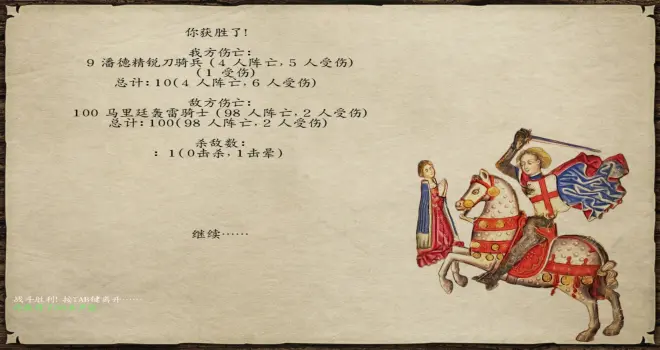 你获胜了!
我方伤亡:
9 潘德精锐刀骑兵 (4 人阵亡, 5 人受伤)
(1 受伤)
总计: 10(4 人阵亡, 6 人受伤)
敌方伤亡:
100 马里廷轰雷骑士 (98 人阵亡, 2 人受伤)
总计: 100(98 人阵亡, 2 人受伤)
杀敌数:
: 1(0击杀, 1击晕)
继续……
战斗胜利! 按TAB键离开……